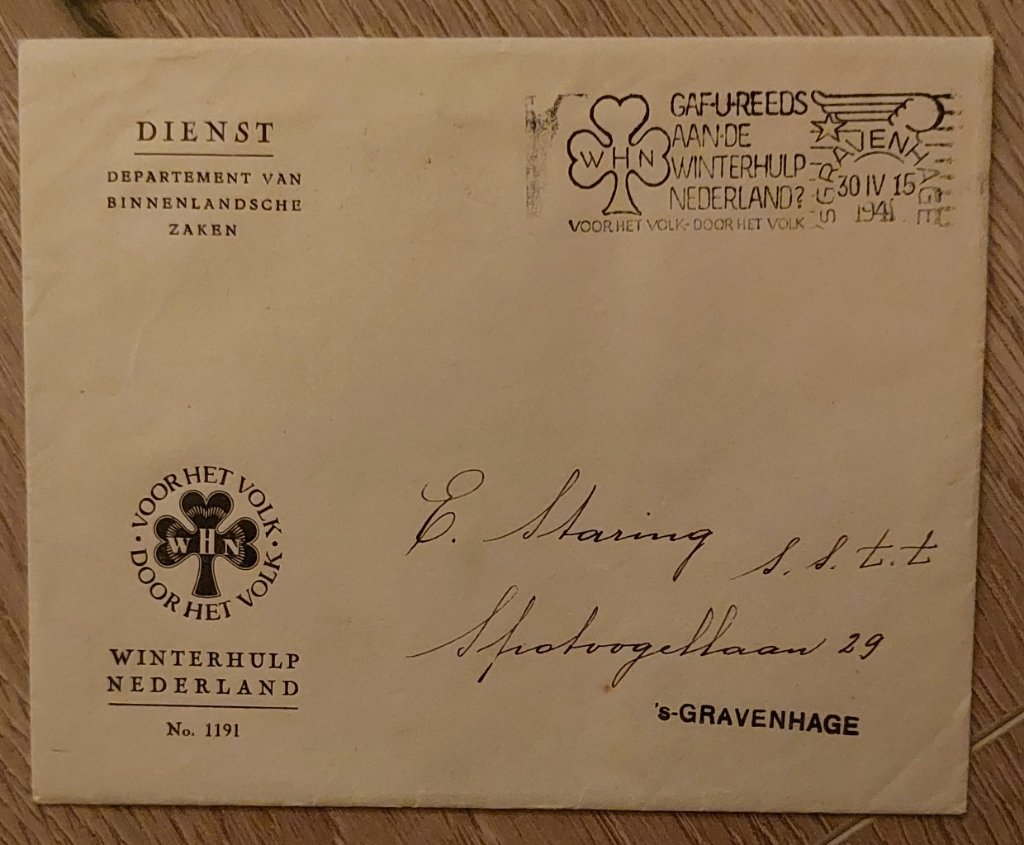 DIENST
DEPARTEMENT VAN
BINNENLANDSCHE
ZAKEN
WHN
GAF·U·REEDS
AAN·DE
WINTERHULP
NEDERLAND?
VOOR HET VOLK - DOOR HET VOLK
'SGRAVENHAGE
30 IV 15
1941
· VOOR HET VOLK ·
WHN
DOOR HET VOLK
WINTERHULP
NEDERLAND
No. 1191
E. Staring
s. s. t. t
Spotvogellaan 29
's-GRAVENHAGE